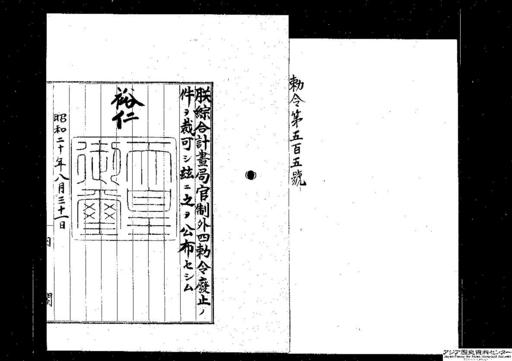 勅令第五百五號
朕綜合計畫局官制外四勅令廢止ノ
件ヲ裁可シ玆ニ之ヲ公布セシム
裕仁
天皇御璽
昭和二十年八月三十一日
内閣
アジア歴史資料センター